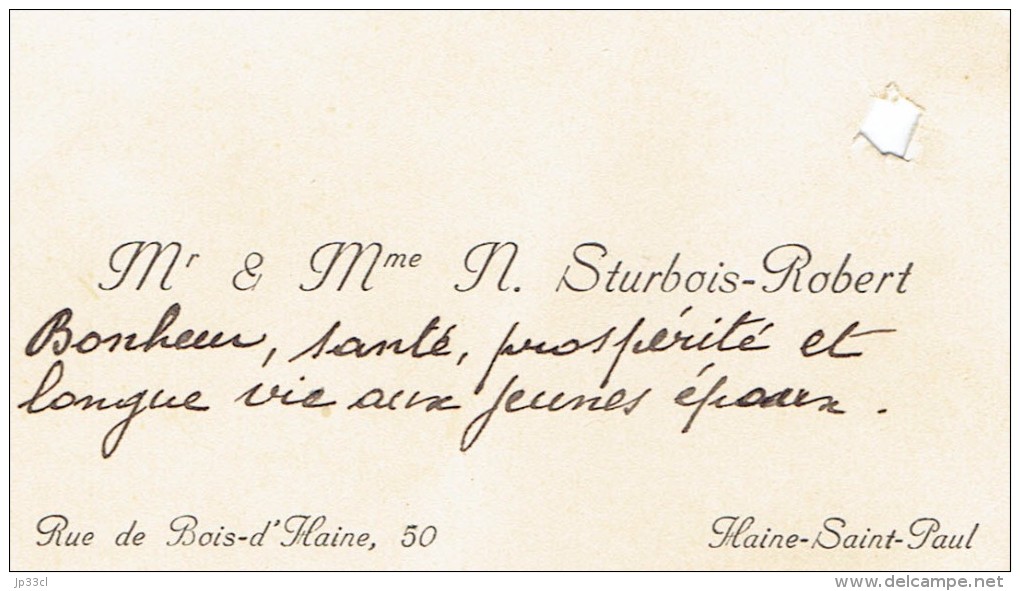 Mr & Mme N. Sturbois-Robert
Bonheur, santé, prospérité et
longue vie aux jeunes époux.
Rue de Bois-d'Haine, 50 Haine-Saint-Paul
jp33cl www.delcampe.net